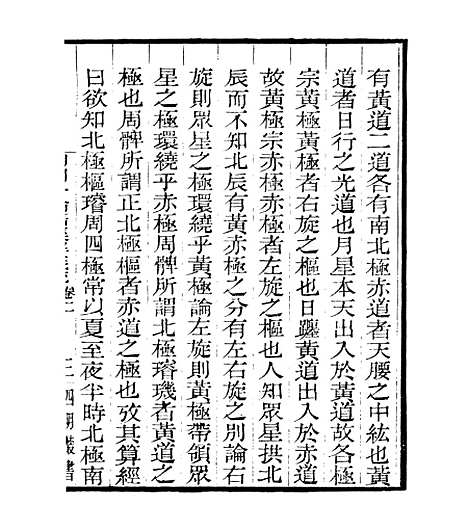 有黃道二道各有南北極赤道者天腰之中紘也黃
道者日行之光道也月星本天出入於黃道故各極
宗黃極黃極者右旋之樞也日躔黃道出入於赤道
故黃極宗赤極赤極者左旋之樞也人知眾星拱北
辰而不知北辰有黃赤極之分有左右旋之別論右
旋則眾星之極環繞乎黃極論左旋則黃極帶領眾
星之極環繞乎赤極周髀所謂北極璿璣者黃道之
極也周髀所謂正北極樞者赤道之極也攷其算經
曰欲知北極樞璿周四極常以夏至夜半時北極南
卷二
三
四明叢書